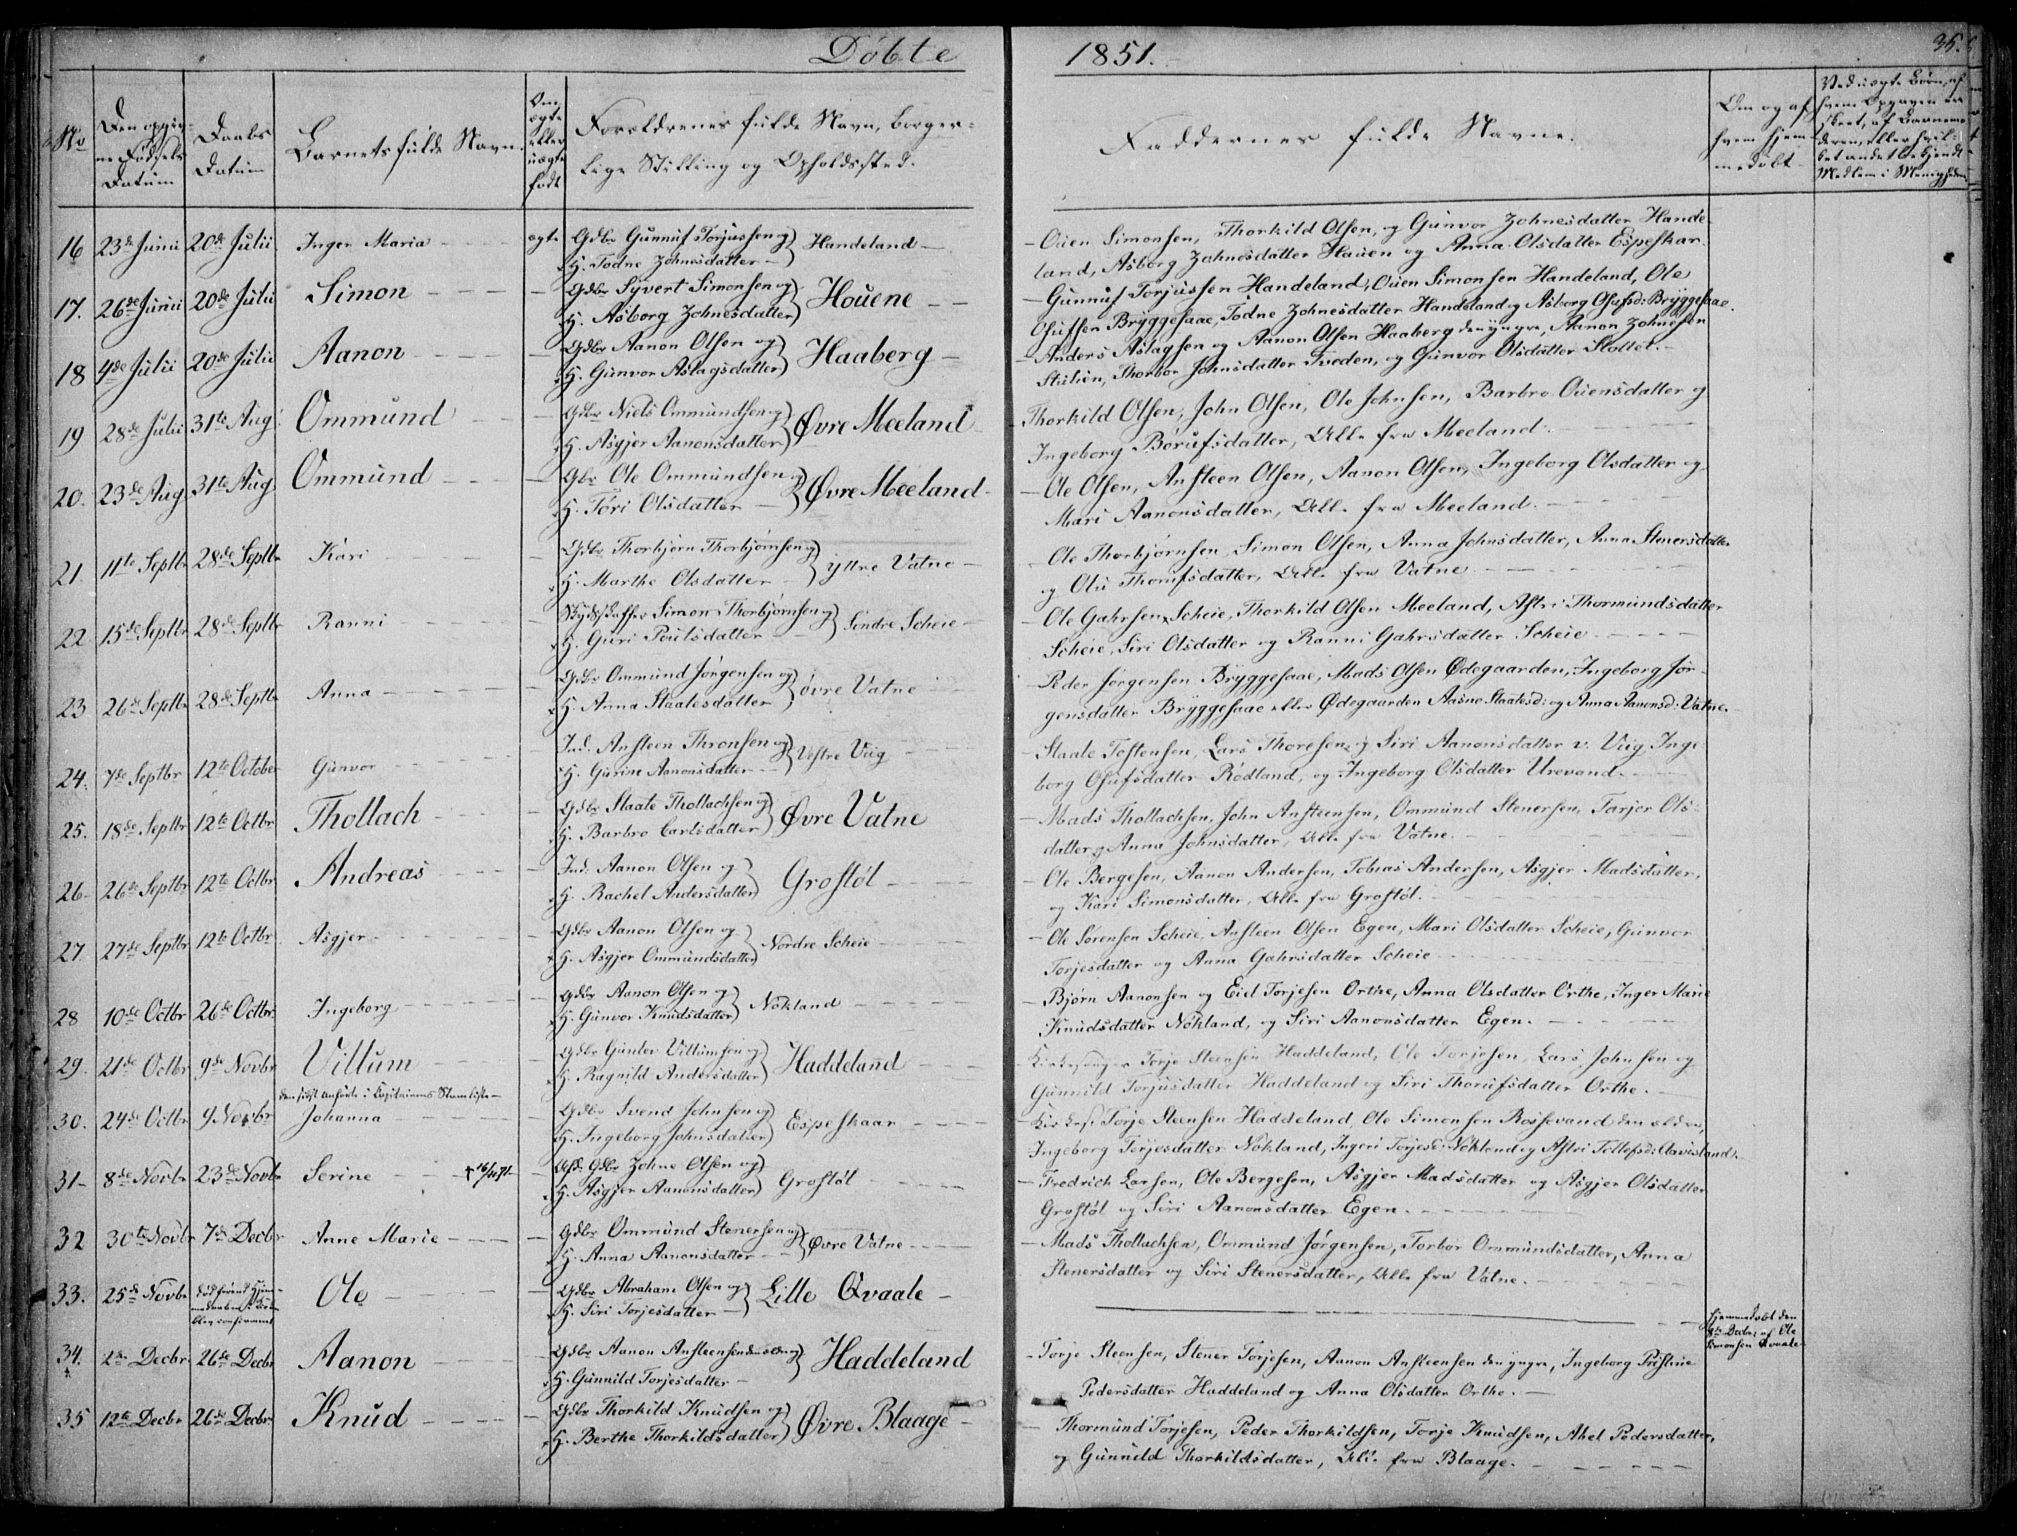 Döbte 1851.
35.
No
Den opgiv-
ne Fødsels
Datum
Daabs
Datum
Barnets fulde Navn.
Om
ægte
eller
uægte
født
Forældrenes fulde Navn, borger-
lige Stilling og Opholdssted.
Faddernes fulde Navne.
Om og af
hvem hjem-
medøbt
Ved uægte Børn, af
hvem Opgaven er
skeet, af Barnemo-
deren, eller hvil-
ket andet bekjendt
Medlem i Menigheden
16 23de Junii 20de Julii Inger Maria ægte Gdbr Gunnuf Torjussen og
H. Todne Zohnesdatter Handeland
Ouen Simonsen, Thorkild Olsen, og Gunvor Zohnesdatter Hande-
land, Asborg Zohnesdatter Hauen og Anna Olsdatter Espeskar.
17. 26de Junii 20de Julii Simon Gdbr Syvert Simonsen og
H. Asborg Zohnesdatter Houene
Gunnuf Torjussen Handeland, Ouen Simonsen Handeland, Ole
Osufsen Bryggesaae, Todne Zohnesdatter Handeland og Asborg Osufsd: Bryggesaae.
18 4de Julii 20de Julii Aanon Gdbr Aanon Olsen og
H. Gunvor Aslagsdatter Haaberg
Anders Aslagsen og Aanon Olsen Haaberg den yngre, Aanon Zohnesen
Stulien, Thorbor Johnsdatter Tveden, og Gunvor Olsdatter Slottel.
19 28de Julii 31te Aug Ommund Gdbr Niels Ommundsen og
H. Asgjer Aanonsdatter Øvre Meeland
Thorkild Olsen, John Olsen, Ole Johnsen, Barbro Ouensdatter og
Ingeborg Borufsdatter, Alle fra Meeland.
20. 23de Aug 31te Aug Ommund Gbr Ole Ommundsen og
H. Tori Olsdatter Øvre Meeland
Ole Olsen, Ansteen Olsen, Aanon Olsen, Ingeborg Olsdatter og
Mari Aanonsdatter, Alle fra Meeland.
21. 11te Septbr 28de Septbr Kari Gdbr Thorbjørn Thorbjørnsen og
H. Marthe Olsdatter yttre Vatne
Ole Thorbjørnsen, Simon Olsen, Anna Johnsdatter, Anna Stenersdatter
og Olu Thorufsdatter, Alle fra Vatne
22 15de Septbr 28de Septbr Ranni Skydsskaffer Simon Thorbjørnsen og
H. Guri Poulsdatter Søndre Scheie
Ole Gahrsen Scheie, Thorkild Olsen Meeland, Astri Thormundsdatter
Scheie, Siri Olsdatter og Ranni Gahrsdatter Scheie
23 26de Septbr 28de Septbr Anna Gdbr Ommund Jørgensen og
H. Anna Staalesdatter øvre Vatne
Peder Jørgensen Bryggesaae, Mads Olsen Ødegaarden, Ingeborg Jør-
gensdatter Bryggesaae eller Ødegaarden Aasne Staalesd: og Anna Aanonsd: Vatne.
24. 7de Septbr 12te October Gunvor Ind: Ansteen Thronsen og
H. Gurine Aanonsdatter Vestre Viig
Staale Tostensen, Lars Thoresen og Siri Aanonsdatter v. Viig, Inge-
borg Osufsdatter Rødland, og Ingeborg Olsdatter Urevand.
25. 18de Septbr 12te Octbr Thollach Gdbr Staale Thollachsen og
H. Barbro Carlsdatter Øvre Vatne
Mads Thollachsen, John Ansteensen, Ommund Stenersen, Tarjer Ols-
datter og Anna Johnsdatter, Alle fra Vatne.
26 26de Septbr 12te Octbr Andreas Ind: Aanon Olsen og
H. Rachel Andersdatter Grostøl
Ole Bergesen, Aanon Andersen, Tobias Andersen, Asgjer Madsdatter,
og Kari Simonsdatter, Alle fra Grostøl.
27 27de Septbr 12te Octbr Asgjer Gdbr Aanon Olsen og
H. Asgjer Ommundsdatter Nordre Scheie
Ole Sørensen Scheie, Ansteen Olsen Egen, Mari Olsdatter Scheie, Gunvor
Torjesdatter og Anna Gahrsdatter Scheie
28 10de Octbr 26de Octbr Ingeborg Gdbr Aanon Olsen og
H. Gunvor Knudsdatter Nøkland
Bjørn Aanonsen og Eid Torjesen Orthe, Anna Olsdatter Orthe, Inger Marie
Knudsdatter Nøkland, og Siri Aanonsdatter Egen.
29. 21de Octbr 9de Novbr Villum Gdbr Gunler Villumsen og
H. Ragnild Andersdatter Haddeland
Kirkesanger Torje Steensen Haddeland, Ole Torjesen, Lars Johnsen og
Gunnild Torjusdatter Haddeland og Siri Thorufsdatter Orthe.
den sidst anførte i Capitainens Stamliste
30. 24de Octbr 9 Novbr Johanna Gdbr Svend Johnsen og
H. Ingeborg Johnsdatter Espeskaar
Kirkes: Torje Steensen Haddeland, Ole Simonsen Rossevand den ældre,
Ingeborg Torjesdatter Nøkland, Ingeri Torjesd: Nøkland og Astri Tellefsd: Aavesland.
31 8de Novbr 23de Novbr Serine + 16/4 71 Gdbr Zohne Olsen og
H. Asgjer Aanonsdatter Grostøl
Fredrich Larsen, Ole Bergesen, Asgjer Madsdatter og Asgjer Olsdatter
Grostøl og Siri Aanonsdatter Egen.
32 30te Novbr 7de Decbr Anne Marie Gdbr Ommund Stenersen og
H. Anna Aanonsdatter Øvre Vatne
Mads Thollachsen, Ommund Jørgensen, Torbor Ommundsdatter, Anna
Stenersdatter og Siri Stenersdatter, Alle fra Vatne.
33. 25de Novbr død førend Hjem-
medaaben i Kirken
blev confirmeret Ole Gdbr Abraham Olsen og
H. Siri Torjesdatter Lille Qvaale
hjemmedøbt den
8de Decbr: af Ole
Simonsen Qvaale
34. 2de Decbr 26de Decbr Aanon Gdbr Aanon Ansteensen den ældre og
H. Gunnild Torjesdatter Haddeland
Torje Steensen, Stener Torjesen, Aanon Ansteensen den yngre, Ingeborg Pristine
Pedersdatter Haddeland og Anna Olsdatter Orthe.
35 12te Decbr 26de Decbr Knud Gdbr Thorkild Knudsen og
H. Berthe Thorkildsdatter Øvre Blaage
Thormund Torjesen, Peder Thorkildsen, Torje Knudsen, Ahel Pedersdatter,
og Gunnild Thorkildsdatter, Alle fra Blaage.